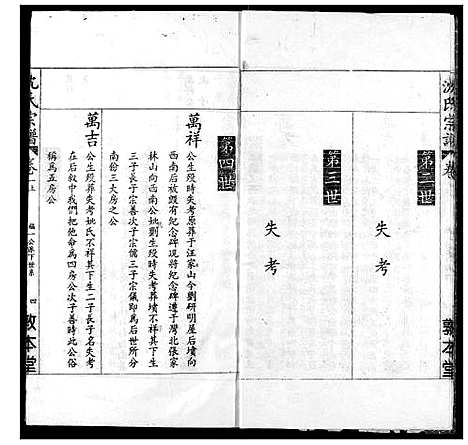 沈氏宗譜
卷
第二世
失考
第三世
失考
敦本堂
第四世
萬祥
公生歿時失考原葬于汪家山今劉研明屋后墳向
西南后放毀有紀念碑現將紀念碑遷于灣北張家
林山向西南公妣劉生歿時失考葬墳不祥其下生
三子長子宗善次子宗儒三子宗儀即為后世所分
南份三大房之公
萬吉
公生歿葬失考妣氏不祥其下生二子長子名失考
在后叙中我們把他命為四房公次子善時此公俗
稱為五房公
沈氏宗譜
卷
公派下世系
四
敦本堂